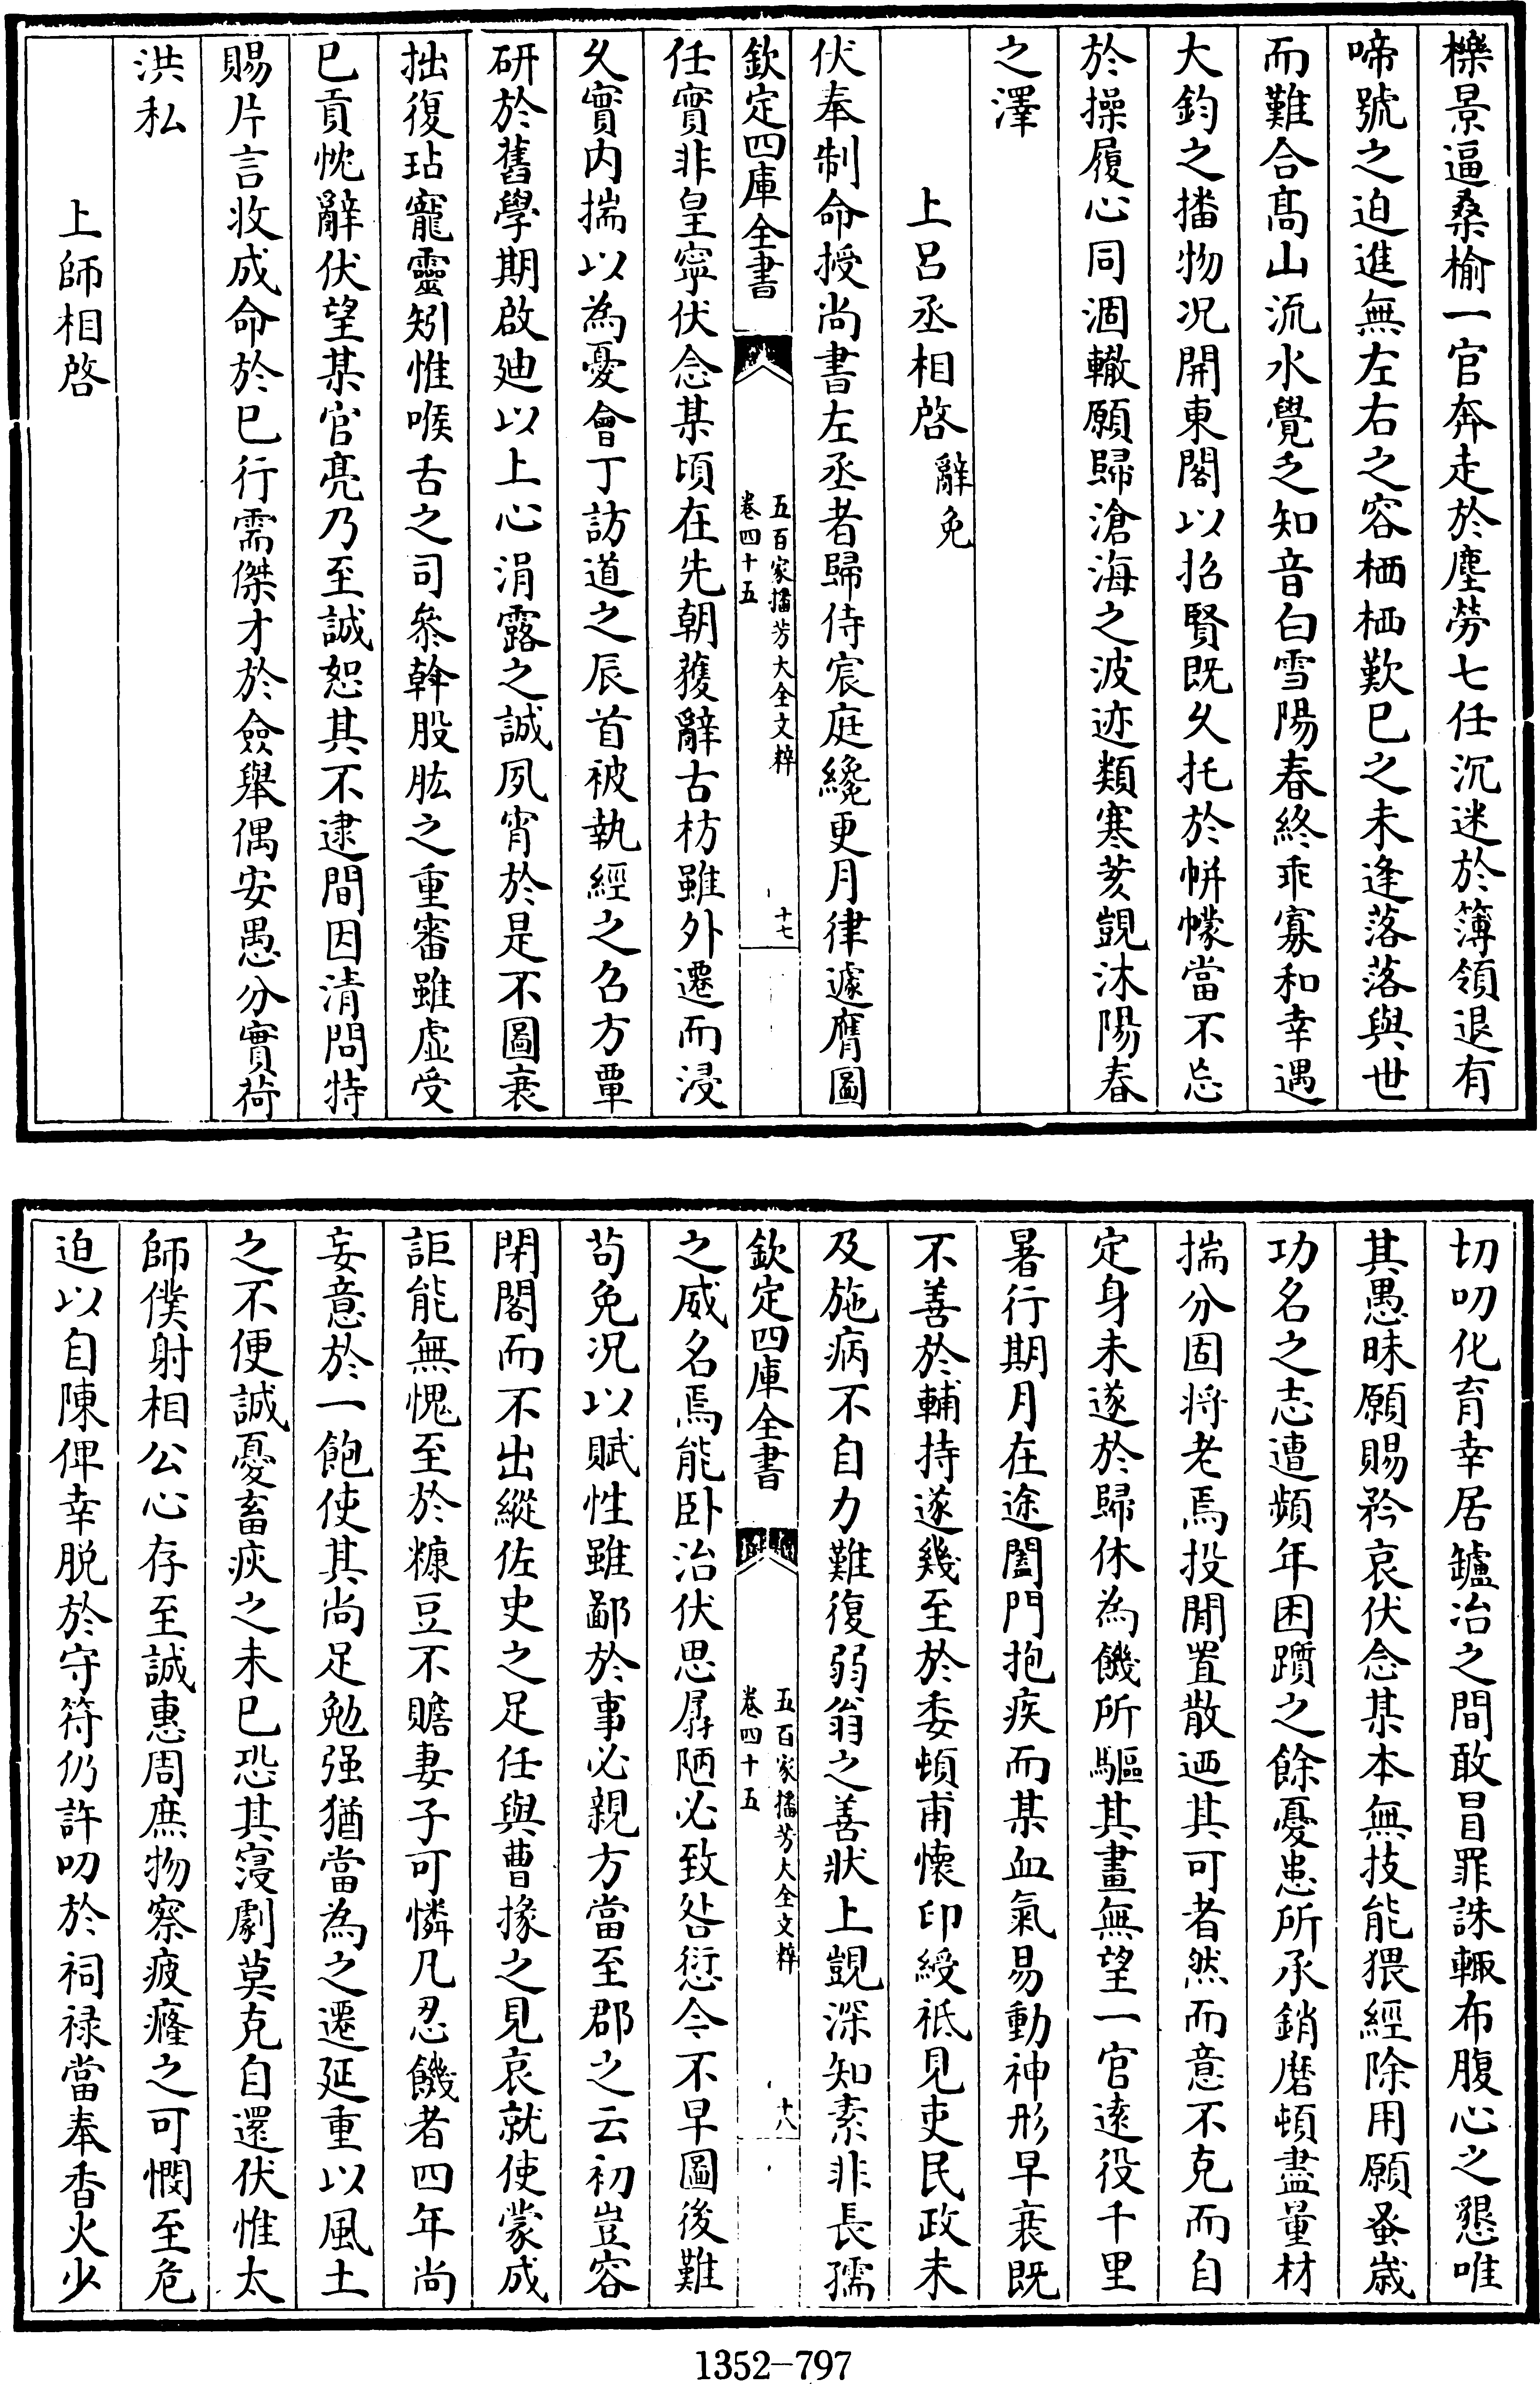 櫟景逼桑榆一官奔走於塵勞七任沉迷於簿領退有
啼號之迫進無左右之容栖栖歎已之未逢落落與世
而難合髙山流水覺乏知音白雪陽春終乖寡和幸遇
大鈞之播物况開東閣以招賢既乆托於帡幪當不忘
於操履心同涸轍願歸滄海之波迹類寒荄覬沐陽春
之澤
上呂丞相啓辭免
伏奉制命授尚書左丞者歸侍宸庭纔更月律遽膺圖
欽定四庫全書
五百家播芳大全文粹
卷四十五
十七
任實非皇寧伏念某頃在先朝獲辭古枋雖外遷而浸
乆實内揣以為憂會丁訪道之辰首被執經之召方覃
研於舊學期啟廸以上心涓露之誠夙宵於是不圖衰
拙復玷寵靈矧惟喉舌之司叅斡股肱之重審雖虛受
已貢忱辭伏望某官亮乃至誠恕其不逮間因清問特
賜片言收成命於已行需傑才於僉舉偶安愚分實荷
洪私
上師相啓
切叨化育幸居罏冶之間敢冒罪誅輙布腹心之懇唯
其愚昧願賜矜哀伏念某本無技能猥經除用願蚤歳
功名之志遭頻年困躓之餘憂患所承銷磨頓盡量材
揣分固將老焉投閒置散廼其可者然而意不克而自
定身未遂於歸休為饑所驅其畫無望一官逺役千里
暑行期月在途闔門抱疾而某血氣易動神形早衰既
不善於輔持遂幾至於委頓甫懐印綬祗見吏民政未
及施病不自力難復弱翁之善狀上覬深知素非長孺
欽定四庫全書
五百家播芳大全文粹
卷四十五
十八
之威名焉能卧治伏思孱陋必致咎愆今不早圖後難
苟免况以賦性雖鄙於事必親方當至郡之云初豈容
閉閣而不出縱佐史之足任與曹掾之見哀就使蒙成
詎能無愧至於糠豆不贍妻子可憐凡忍饑者四年尚
妄意於一飽使其尚足勉强猶當為之遷延重以風土
之不便誠憂畜疾之未已恐其寖劇莫克自還伏惟太
師僕射相公心存至誠惠周庶物察疲癃之可憫至危
迫以自陳俾幸脱於守符仍許叨於祠禄當奉香火少
1352-797